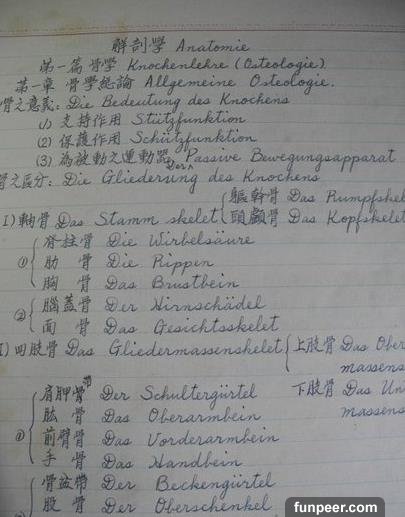 解剖學 Anatomie
第一篇 骨學 Knochenlehre (Osteologie)
第一章 骨學總論 Allgemeine Osteologie.
骨之意義: Die Bedeutung des Knochens
(1) 支持作用 Stützfunktion
(2) 保護作用 Schützfunktion
(3) 為被動之運動器 Der Passive Bewegungsapparat
骨之區分: Die Gliederung des Knochens
I) 軸骨 Das Stamm skelet { 軀幹骨 Das Rumpfskel
頭顱骨 Das Kopfskelet
① { 脊柱骨 Die Wirbelsäure
肋 骨 Die Rippen
胸 骨 Das Brustbein
② { 腦蓋骨 Der Hirnschädel
面 骨 Das Gesichtsskelet
I) 四肢骨 Das Gliedermassenskelet { 上肢骨 Das Ober
massens
下肢骨 Das Un
massens
① { 肩胛骨帶 Der Schultergürtel
肱 骨 Das Oberarmbein
前臂骨 Das Vorderarmbein
手 骨 Das Handbein
{ 骨盆帶 Der Beckengürtel
股 骨 Der Oberschenkel
funpeer.com